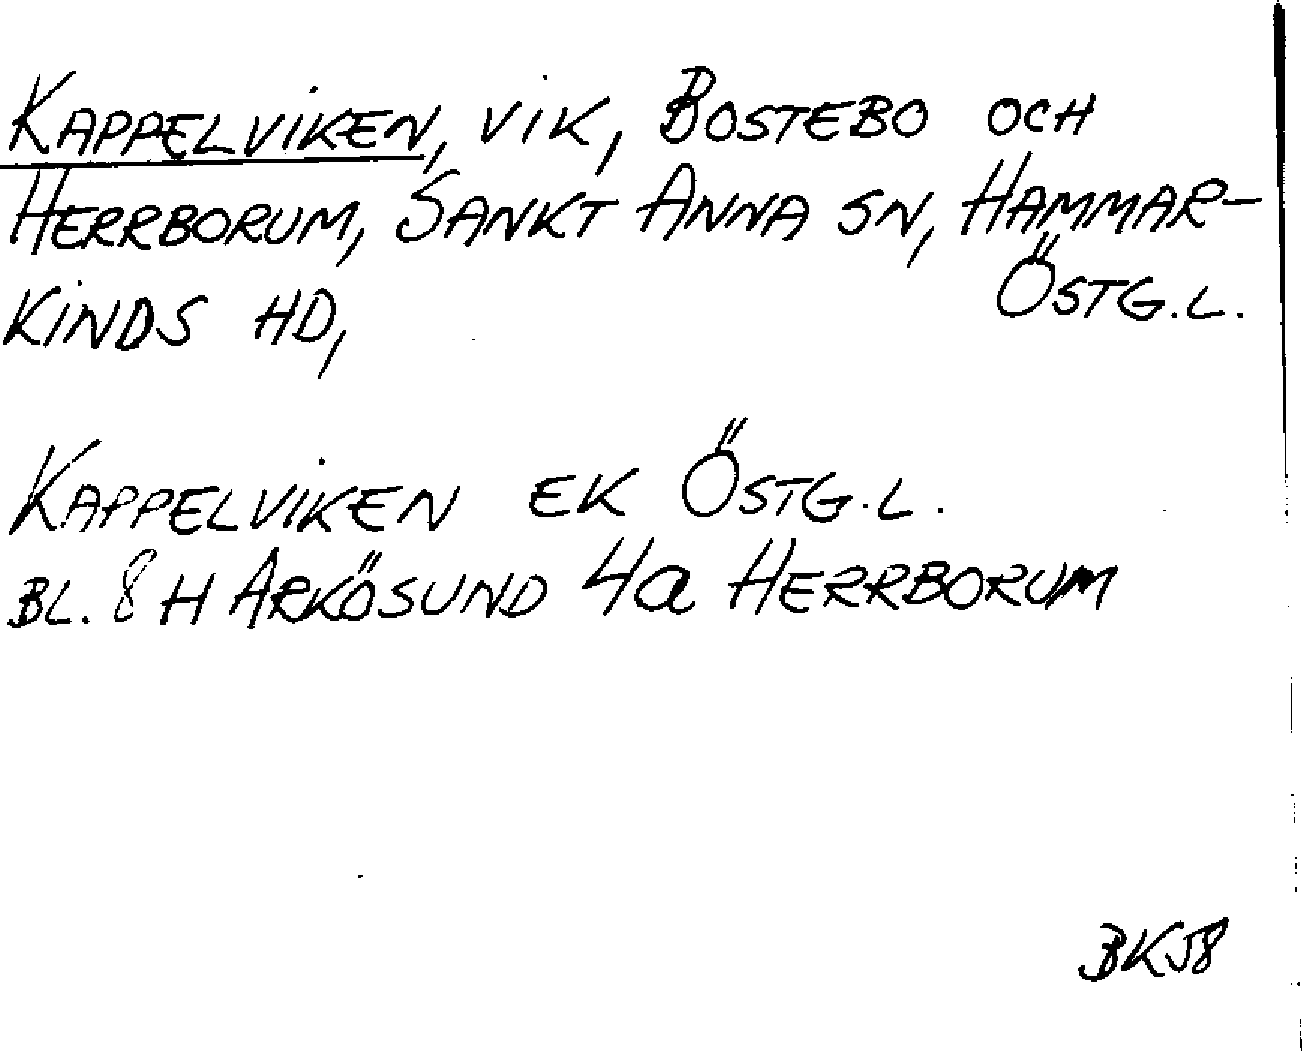 KAPPELVIKEN, VIK, BOSTEBO OCH
HERRBORUM, SANKT ANNA SN, HAMMAR-
KINDS HD, ÖSTG.L.
KAPPELVIKEN EK ÖSTG.L.
BL. 8 H ARKÖSUND 4a HERRBORUM
BKJ8